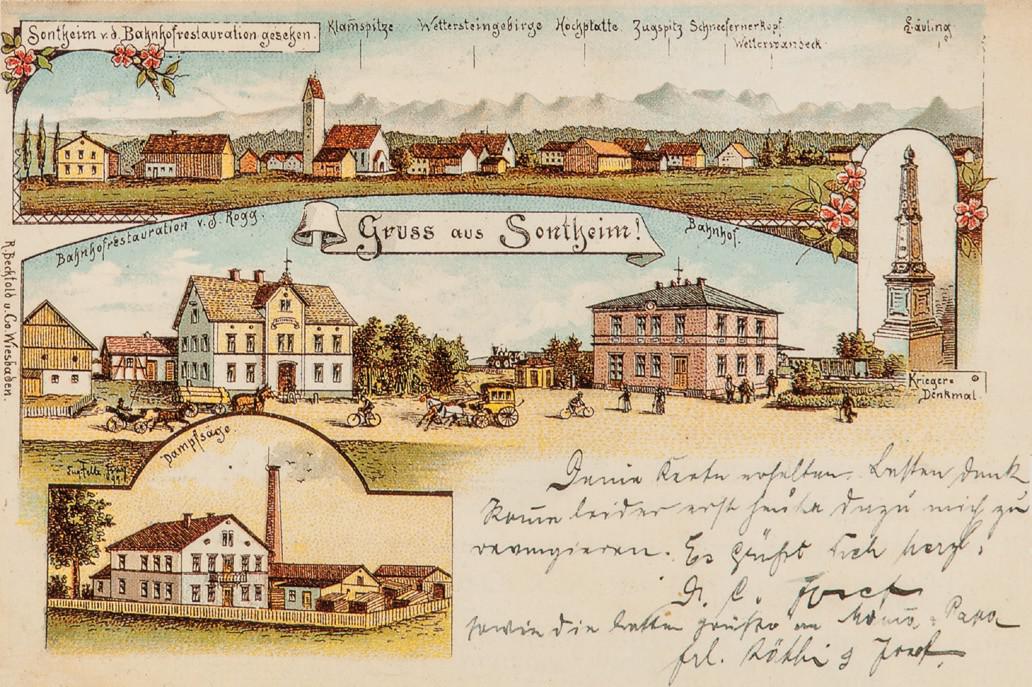 Sontheim v. d. Bahnhofrestauration gesehen.
Klam̄spitze Wettersteingebirge Hochplatte Zugspitz Schneefernerkopf Säuling
Wetterwandeck
Bahnhofrestauration v. J. Rogg.
Gruss aus Sontheim!
Bahnhof.
Krieger=
Denkmal
R. Bechtold u. Co. Wiesbaden.
Dampfsäge
Deine Karte erhalten. Besten Dank
Kom̄e leider erst heute dazu mich zu
revangieren. Es grüßt Dich herzl.
D. C. Josef
sowie die besten Grüße an Mama, Papa
Frl. Käthi & Josef